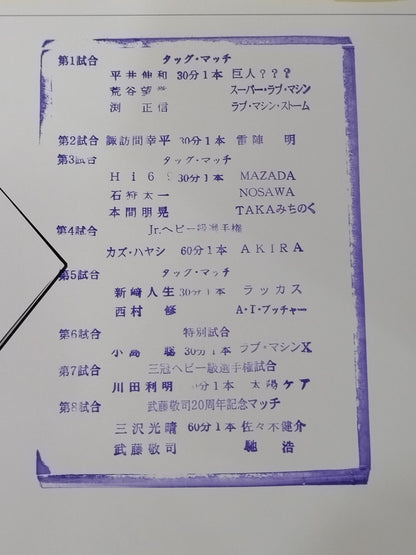 第1試合 タッグ・マッチ
平井伸和 30分1本 巨人？？？
荒谷望誉 スーパー・ラブ・マシン
渕 正信 ラブ・マシン・ストーム
第2試合 諏訪間幸平 30分1本 雷陣 明
第3試合 タッグ・マッチ
Hi69 30分1本 MAZADA
石狩太一 NOSAWA
本間朋晃 TAKAみちのく
第4試合 Jr.ヘビー級選手権
カズ・ハヤシ 60分1本 AKIRA
第5試合 タッグ・マッチ
新崎人生 30分1本 ラッカス
西村 修 A・T・ブッチャー
第6試合 特別試合
小島 聡 30分1本 ラブ・マシンX
第7試合 三冠ヘビー級選手権試合
川田利明 分1本 太陽ケア
第8試合 武藤敬司20周年記念マッチ
三沢光晴 60分1本 佐々木健介
武藤敬司 馳 浩